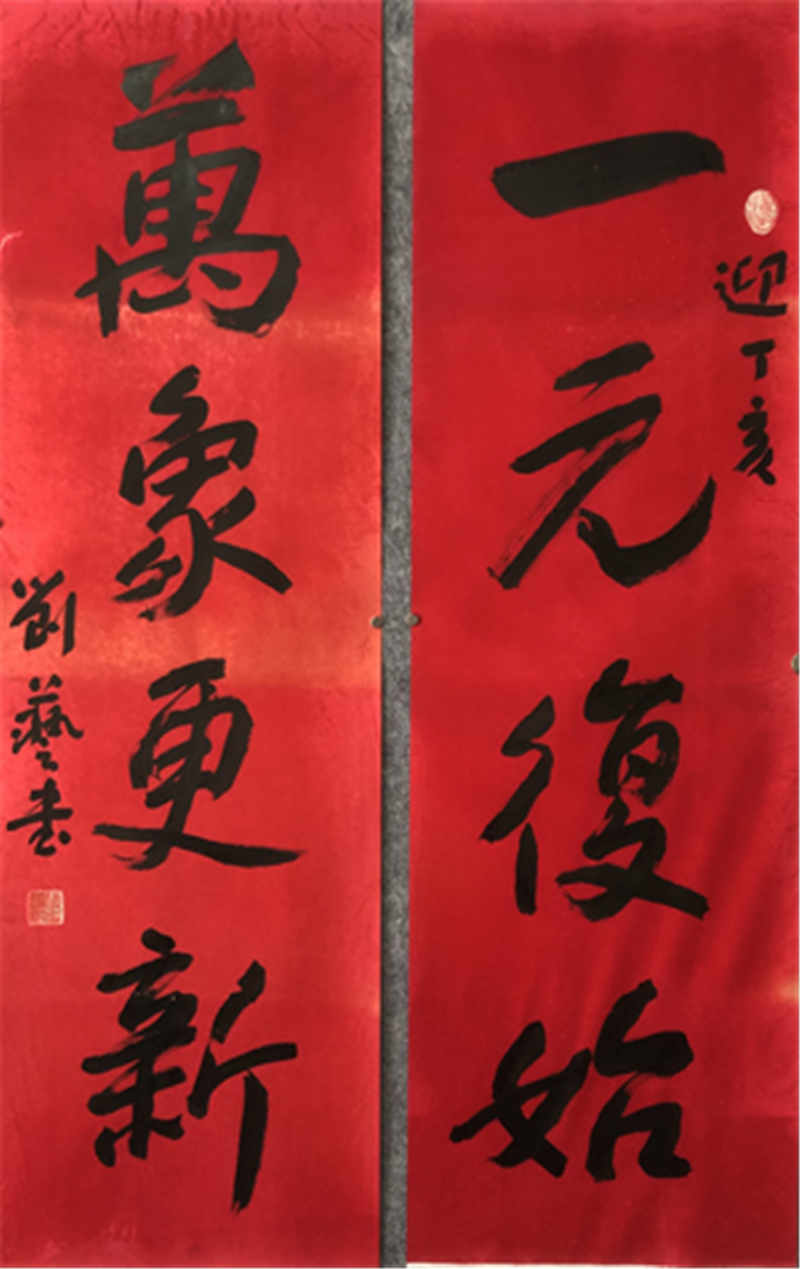 一元復始
迎丁亥
萬象更新
劉藝書